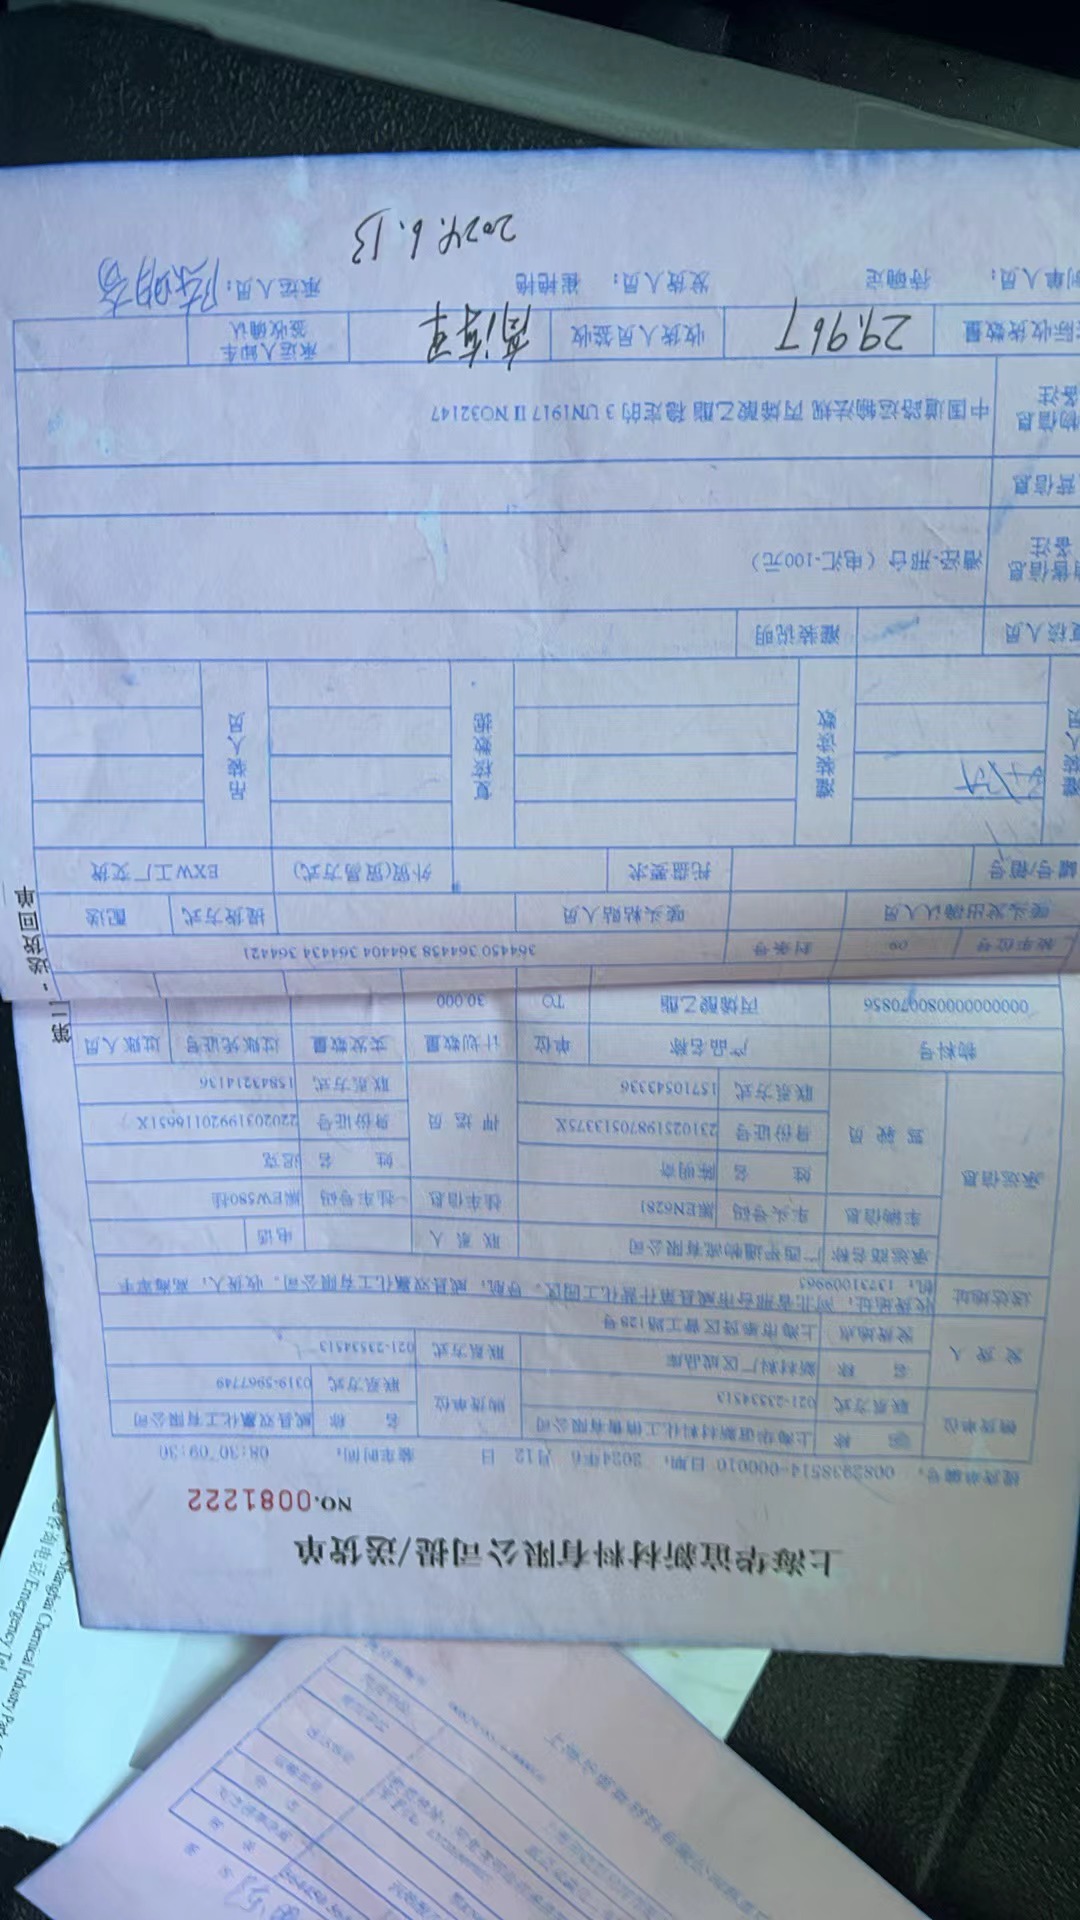 上海华谊新材料有限公司提/送货单
NO.0081222
提货单编号: 0082938514-000010 日期: 2024年6月12日 装车时间: 08:30 09:30
销货单位 名称 上海华谊新材料化工销售有限公司 购货单位 名称 威县双赢化工有限公司
联系方式 021-23534513 联系方式 0319-5967749
发货人 名称 新材料厂区成品库 联系方式 021-23534513
发货地点 上海市奉贤区普工路128号
送达地址 收货地址: 河北省邢台市威县第什营化工园区, 导航: 威县双赢化工有限公司, 收货人: 高海军手
机: 13731009965
承运信息 承运商名称 广西平通物流有限公司 联系人 电话
车辆信息 车头号码 黑EN6281 挂车信息 挂车号码 黑EW580挂
驾驶员 姓名 陈明奇 押运员 姓名
身份证号 23102519870513375X 身份证号 22020319920116651X
联系方式 15710543336 联系方式 15843214136
物料号 产品名称 单位 计划数量 实发数量 过账凭证号 过账人员
000000000080070856 丙烯酸乙酯 TO 30.000
第二 - 送货回单
装车位号 09 封条号 364450 364458 364404 364434 364421
唛头发出确认人员 唛头粘贴人员 提货方式 配送
罐号/箱号 托盘要求 外贸(贸易方式) EXW工厂交货
灌装人员 灌装读数 复核数据 吊装人员
复核人员 灌装说明
售信息备注 漕泾-邢台(电汇-100元)
营信息
物信息备注 中国道路运输法规 丙烯酸乙酯 稳定的 3 UN1917 II NO32147
实际收货数量 29.967 收货人员签收 高海军 承运人卸车签收确认
制单人员: 待确定 发货人员: 崔艳艳 承运人员: 陈明奇
2024.6.13
Shanghai Chemical Industry Park
咨询电话/Emergency Tel